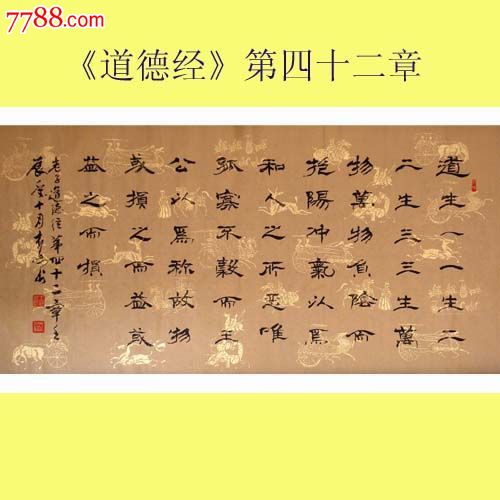 7788.com
《道德经》第四十二章
道生一一生二
二生三三生萬
物萬物負陰而
抱陽冲氣以爲
和人之所惡唯
孤寡不穀而王
公以爲称故物
或損之而益或
益之而損
老子道德經第四十二章
十月